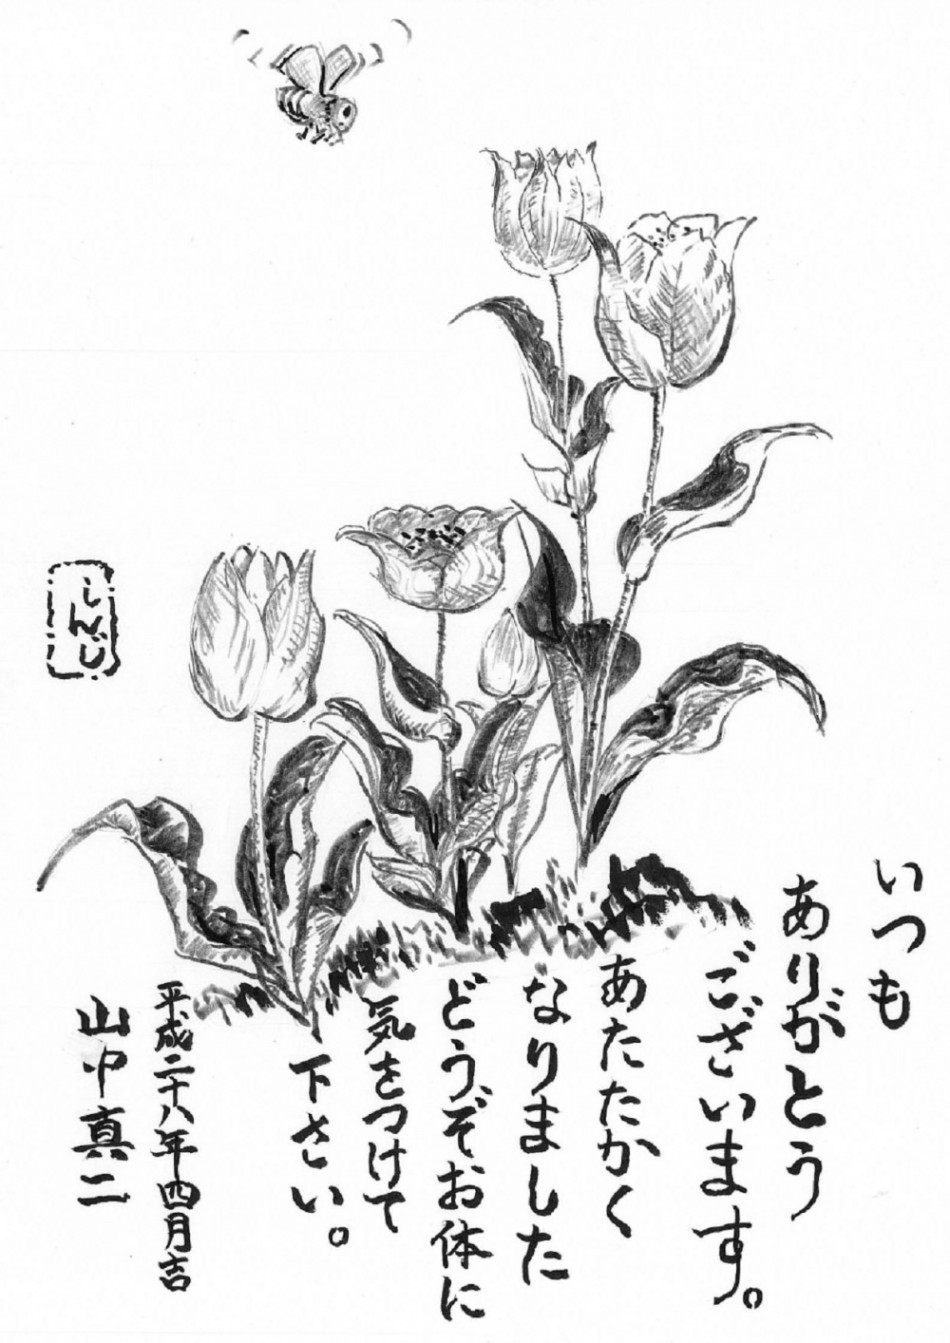 いつも
ありがとう
ございます。
あたたかく
なりました
どうぞお体に
気をつけて
下さい。
平成二十八年四月吉
山中真二
しんじ